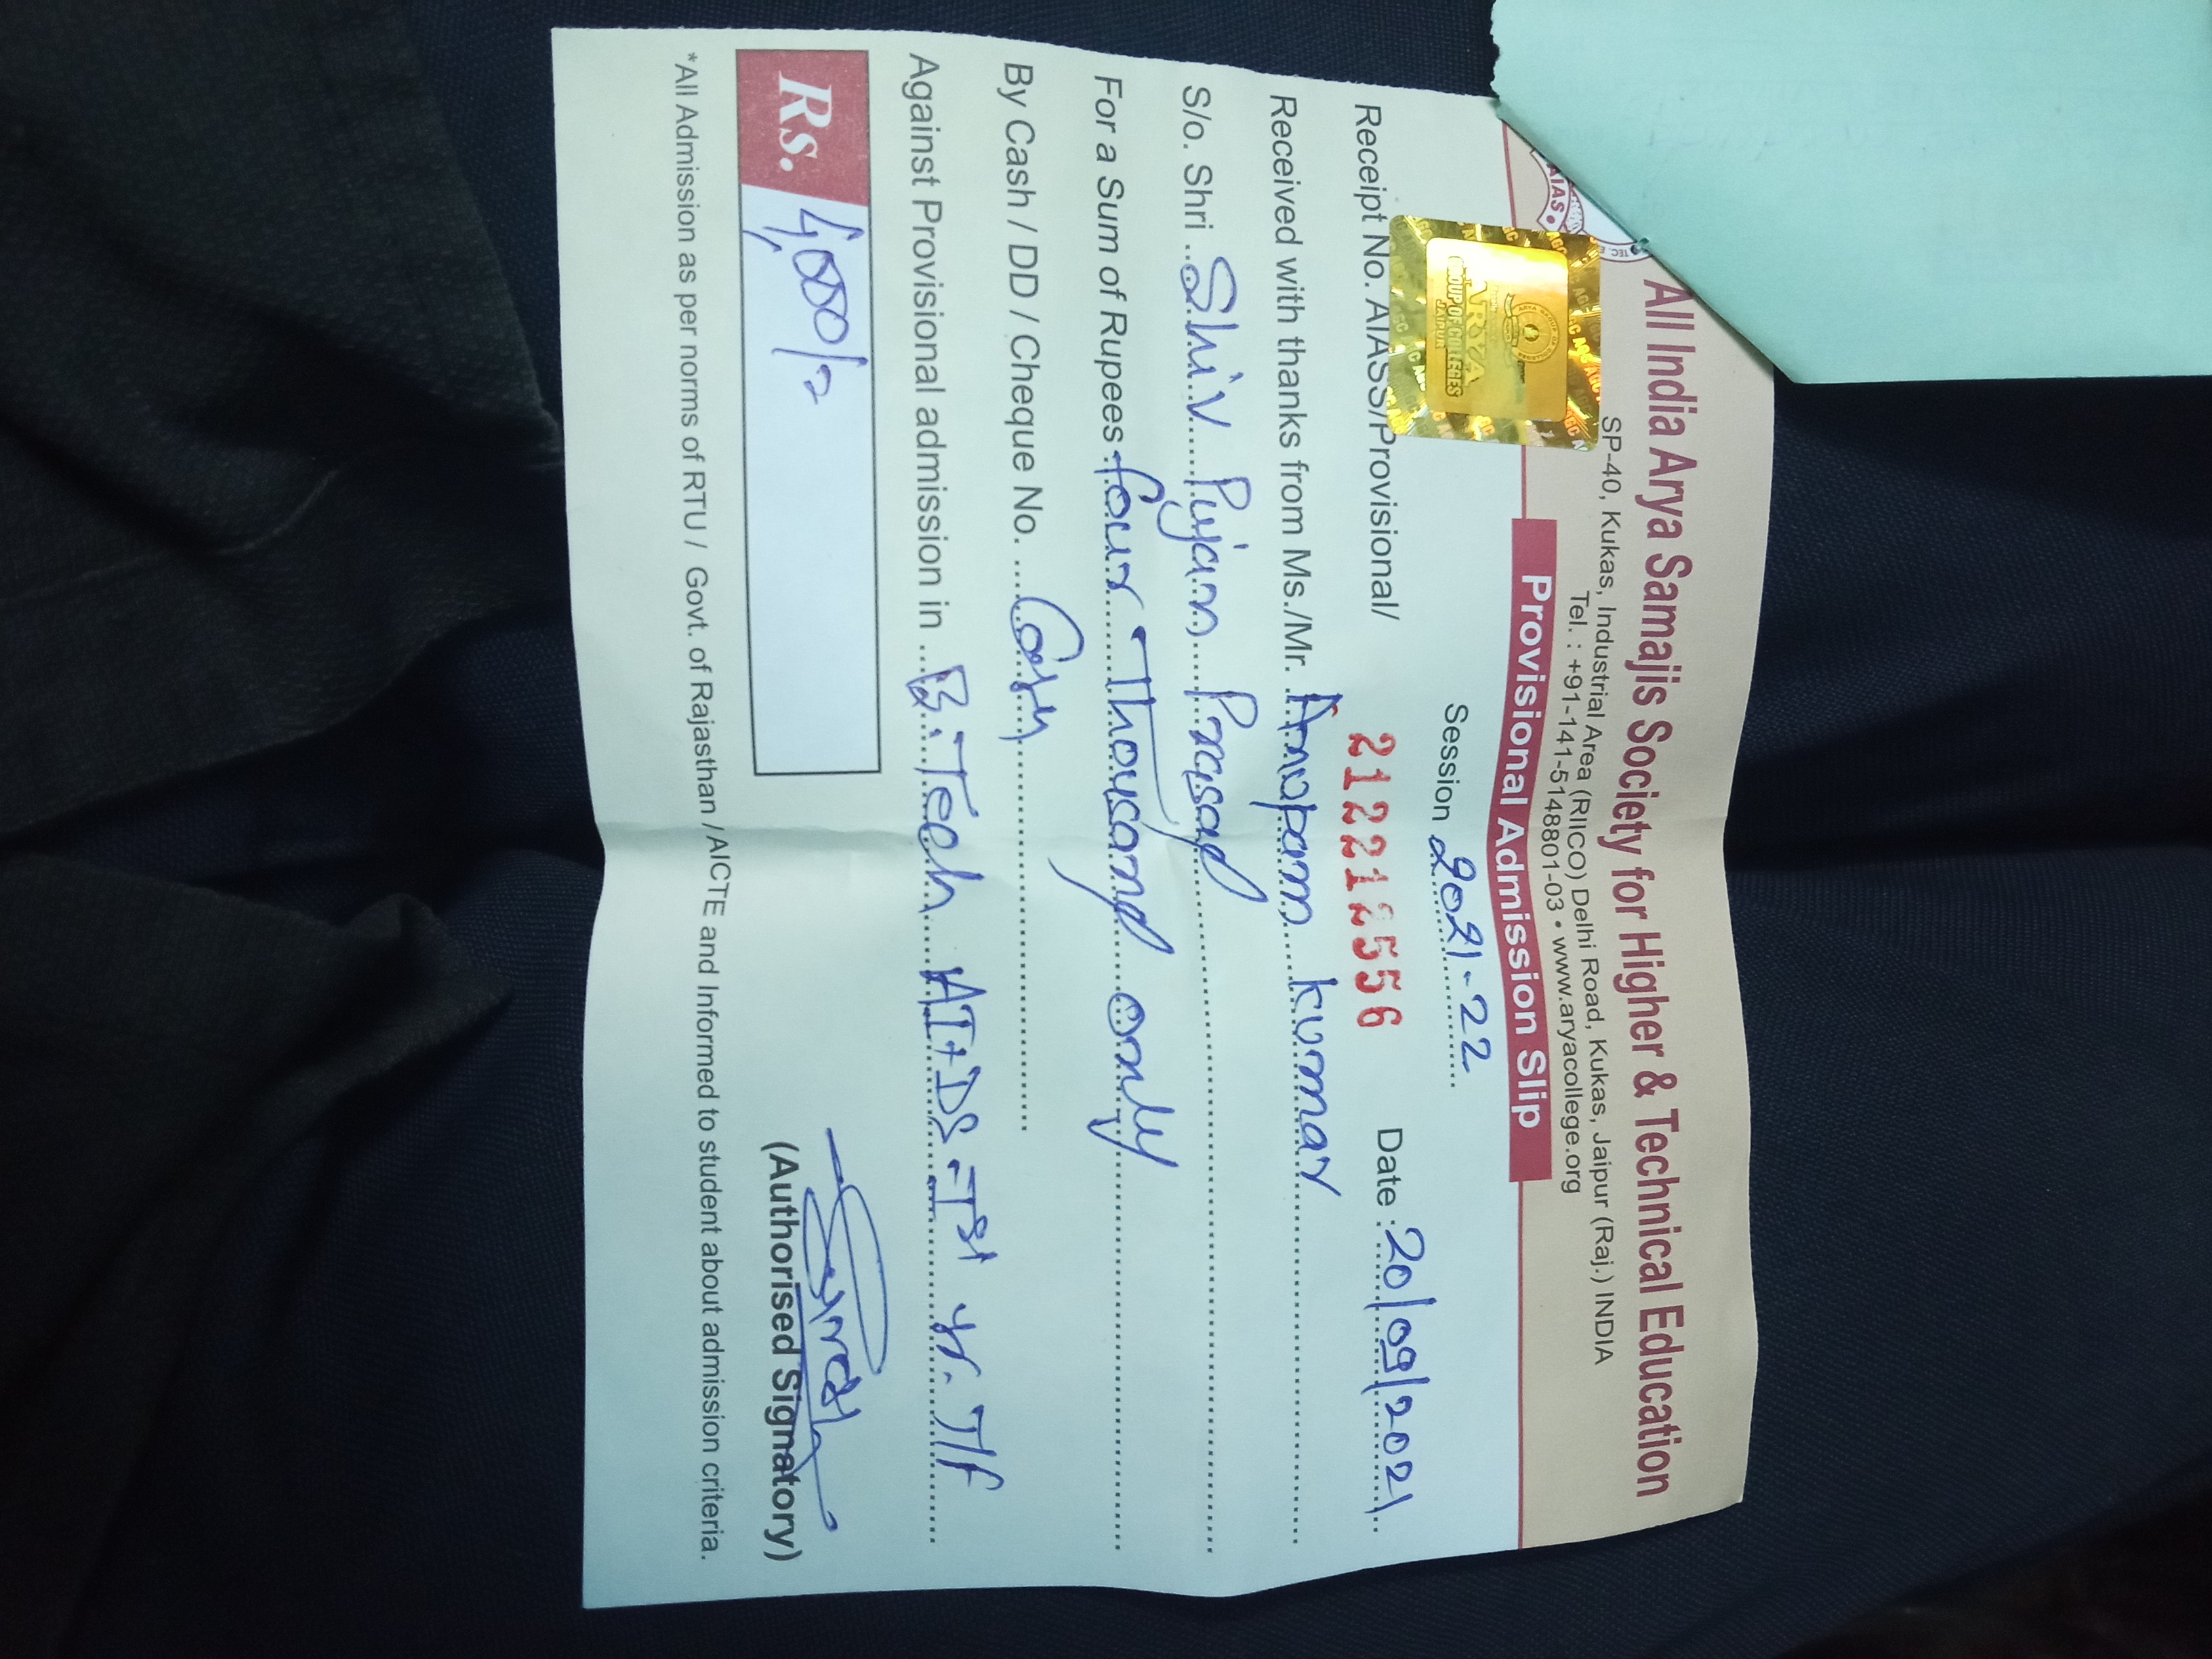 All India Arya Samajis Society for Higher & Technical Education
SP-40, Kukas, Industrial Area (RIICO) Delhi Road, Kukas, Jaipur (Raj.) INDIA
Tel. : +91-141-5148801-03 • www.aryacollege.org
AIAS
Provisional Admission Slip
ARYA
GROUP OF COLLEGES
JAIPUR
Session 2021-22
Receipt No. AIASS/Provisional/ 212212556 Date : 20/09/2021
Received with thanks from Ms./Mr. Anopam kumar
S/o. Shri Shiv Pujan Prasad
For a Sum of Rupees four Thousand only
By Cash / DD / Cheque No. Cash
Against Provisional admission in B.Tech AI+DS Ist yr. T/F
Rs. 4,000/=
(Authorised Signatory)
*All Admission as per norms of RTU / Govt. of Rajasthan / AICTE and Informed to student about admission criteria.